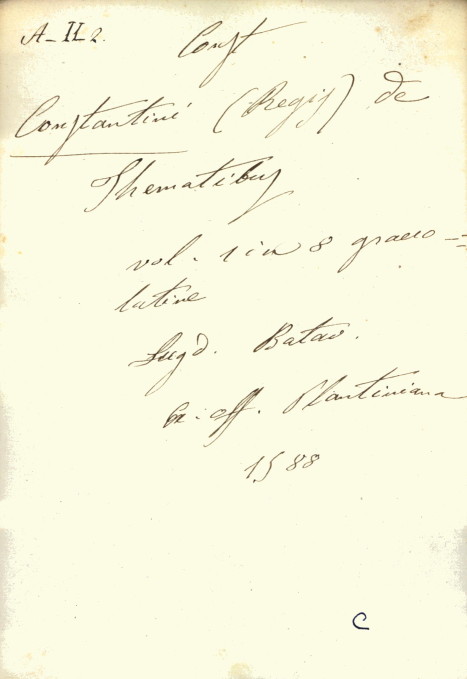 A-II 2.
Const
Constantini (Regis) de
Thematibus
vol. 1 in 8 graeco =
latine
Lugd. Batav.
Ex. off. Plantiniana
1588
C